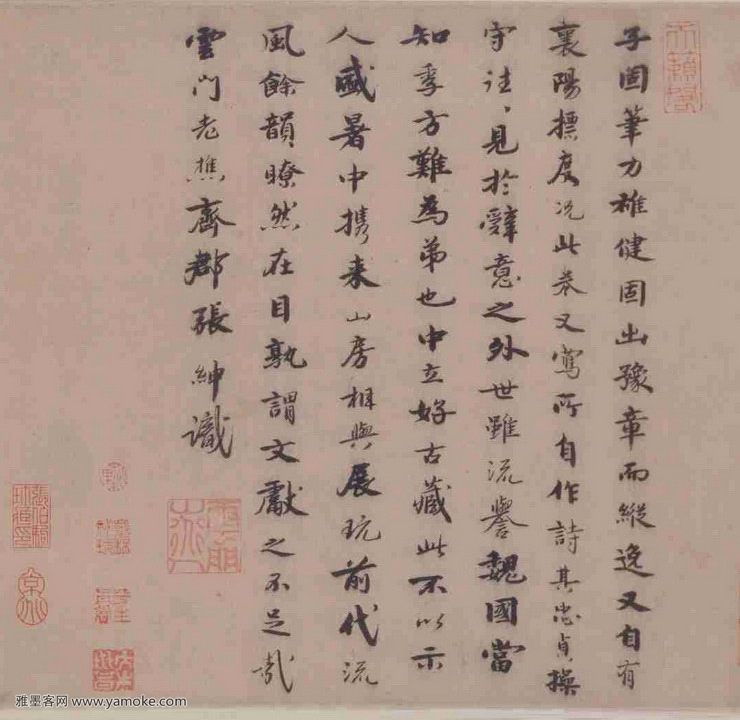 子固筆力雄健固出豫章而縱逸又自有
襄陽標度況此卷又寫所自作詩其忠貞操
守往〻見於辭意之外世雖流譽魏國當
知季方難為弟也中立好古藏此不以示
人盛暑中攜来山房相與展玩前代流
風餘韻瞭然在目孰謂文獻之不足哉
雲門老樵齊郡張紳識
天籟閣
張伯駒珍藏印
京兆
雅墨客网 www.yamoke.com